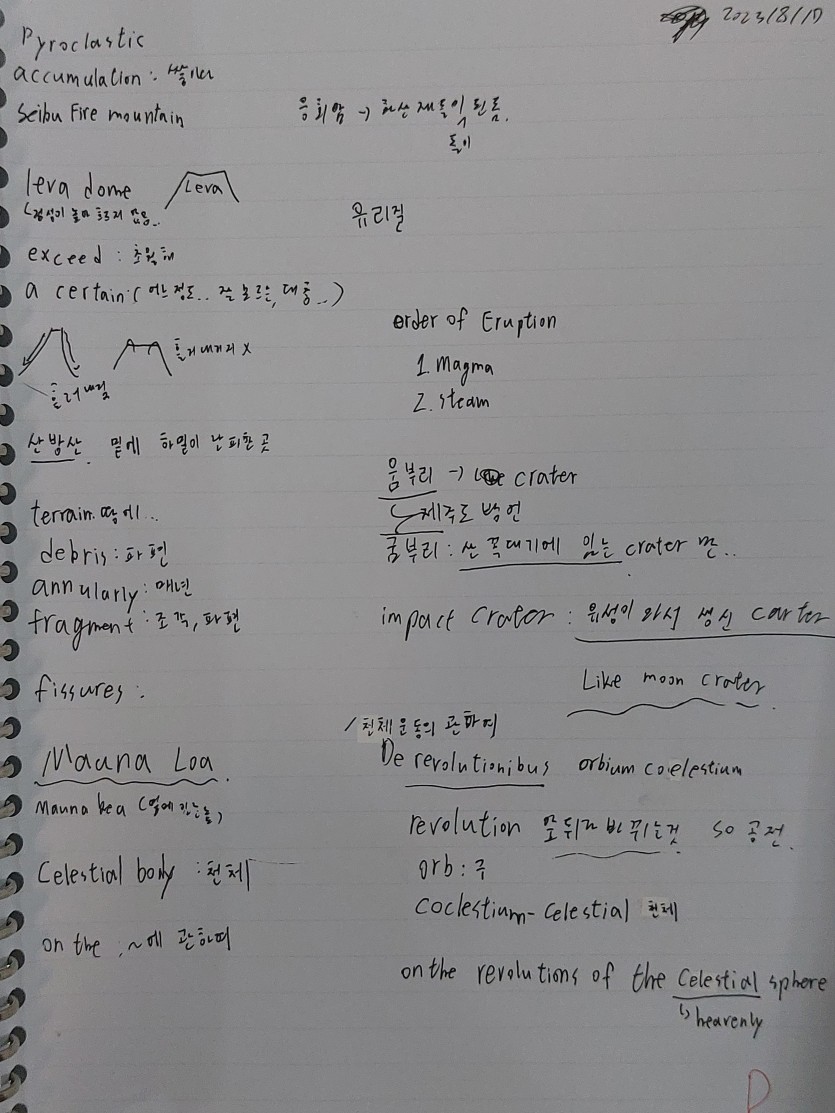 2023/8/17
Pyroclastic
accumulation : 쌓기
Seibu Fire mountain
응회암 → 화산재들이 된 돌.
돌이
leva dome
Leva
점성이 높아 흐르지 않음..
유리질
exceed : 초월해
a certain : ( 어느정도.. 잘 모르는, 대충.. )
흘러내리지 X
흘러내림
order of Eruption
1. Magma
2. steam
산방산. 밑에 하멜이 난파한 곳
움부리 → crater
제주도 방언
굼부리 : 산 꼭대기에 있는 crater 면..
terrain. 땅에..
debris : 파편
annularly : 매년
fragment : 조각, 파편
impact crater : 위성이 와서 생신 carter
Like moon crater
fissures :
천체운동의 관하여
Mauna Loa.
De revolutionibus orbium coelestium
Mauna kea (옆에 있는놈)
revolution 앞뒤가 바뀌는것. so 공전.
orb : 구
Celestial body : 천체
Coclestium - Celestial 천체
on the : ~에 관하여
on the revolutions of the Celestial sphere
↳ heavenly